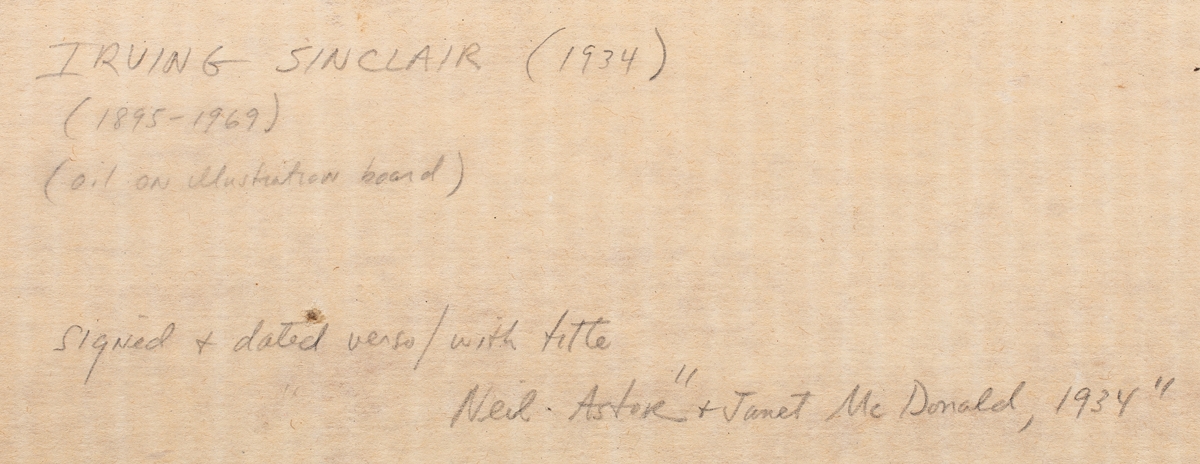 IRVING SINCLAIR (1934)
(1895-1969)
(oil on illustration board)
signed + dated verso/with title
Neil Astor" + Janet McDonald, 1934"